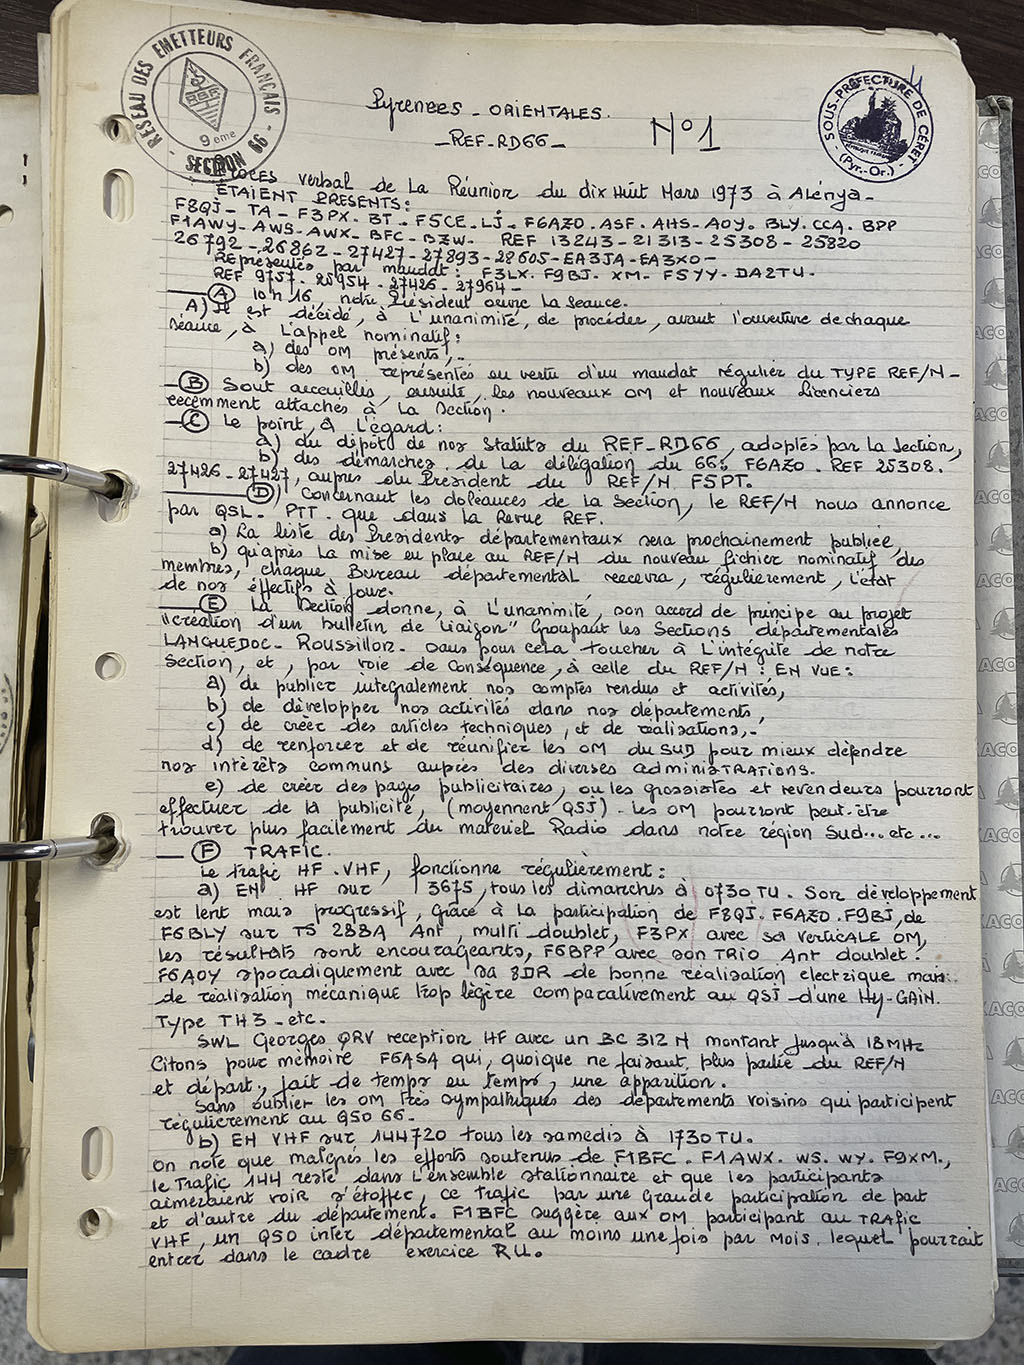 RESEAU DES EMETTEURS FRANÇAIS
REF
9eme
SECTION 66
SOUS-PREFECTURE DE CÉRET
(Pyr.-Or.)
Pyrenees - ORIENTALES.
-REF-RD66-
N°1
Procès verbal de La Réunion du dix Huit Mars 1973 à Alénya-
ÉTAIENT PRESENTS:
F8QJ- TA - F3PX. BT. F5CE. LJ. F6AZO. ASF. AHS- AOY. BLY. CCA. BPP
F1AWY- AWS- AWX- BFC- BZW- REF 13243-21313-25308-25820
26792-26862-27427-27893-28605-EA3JA-EA3XO-
REprésentés par mandat: F3LX. F9BJ. XM. F5YY-DA2TU-
REF 9757- 25954 - 27426 - 27964-
(A) 10h 16, notre Président ouvre La Séance.
A) Il est décidé, à L'unanimité, de procéder, avant l'ouverture de chaque
séance, à L'appel nominatif:
a) des OM présents,-
b) des OM représentés en vertu d'un mandat régulier du TYPE REF/N-
-(B) Sont accueillis, ensuite, les nouveaux OM et nouveaux Licenciers
recemment attachés à La Section.
-(C) Le point, à L'égard:
a) du dépôt de nos Statuts du REF-RD66, adoptés par la Section,
b) des démarches de la délégation du 66: F6AZO. REF 25308.
27426-27427, aupres du Président du REF/N F5PT.
(D) Concernant les doléances de la Section, le REF/N nous annonce
par QSL- PTT. que dans la Revue REF.
a) La liste des Présidents départementaux sera prochainement publiée,
b) qu'après la mise en place au REF/N du nouveau fichier nominatif des
membres, chaque Bureau départemental recevra, régulièrement, l'état
de nos effectifs à jour.
(E) La Section donne, à L'unammité, son accord de principe au projet
"création d'un bulletin de liaison" Groupant les Sections départementales
LANGUEDOC- Roussillon- sans pour cela toucher à L'intégrité de notre
Section, et, par voie de conséquence, à celle du REF/N: EN VUE:
a) de publier integralement nos comptes rendus et activités,
b) de développer nos activités dans nos départements,
c) de créer des articles techniques, et de réalisations,-
d) de renforcer et de réunifier les OM du SUD pour mieux défendre
nos intérêts communs auprès des diverses adminisTRATIONS.
e) de créer des pages publicitaires, ou les grossistes et revendeurs pourront
effectuer de la publicité, (moyennent QSJ)- les OM pourront peut-être
trouver plus facilement du materiel Radio dans notre région Sud... etc...
- (F) TRAFIC.
Le trafic HF. VHF, fonctionne régulièrement:
a) EN HF sur 3675, tous les dimanches à 0730 TU. Son développement
est lent mais progressif, Grâce à La participation de F8QJ. F6AZO. F9BJ, de
F6BLY sur TS 288A Ant, multi doublet, F3PX avec sa verticALE OM,
les résultats sont encourageants, F6BPP avec son TRIO Ant doublet.
F6AOY sporadiquement avec sa 3DR de bonne réalisation electrique mais
de réalisation mécanique trop légère comparativement au QSJ d'une Hy-GAIN.
Type TH3-etc.
SWL Georges QRV reception HF avec un BC 312 N montant jusqu'à 18 MHz
Citons pour mémoire F6ASA qui, quoique ne faisant plus partie du REF/N
et départ., fait de temps en temps, une apparition.
Sans oublier les OM très sympathiques des départements voisins qui participent
régulierement au QSO 66-
b) EN VHF sur 144720 tous les samedis à 1730 TU.
On note que malgrés les efforts soutenus de F1BFC. F1AWX. WS. WY. F9XM.,
le Trafic 144 reste dans L'ensemble stationnaire et que les participants
aimeraient voir s'étoffer, ce trafic par une grande participation de part
et d'autre du département. F1BFC suggère aux OM participant au TRAfic
VHF, un QSO inter départemental au moins une fois par mois, lequel pourrait
entrer dans le cadre exercice R.U.